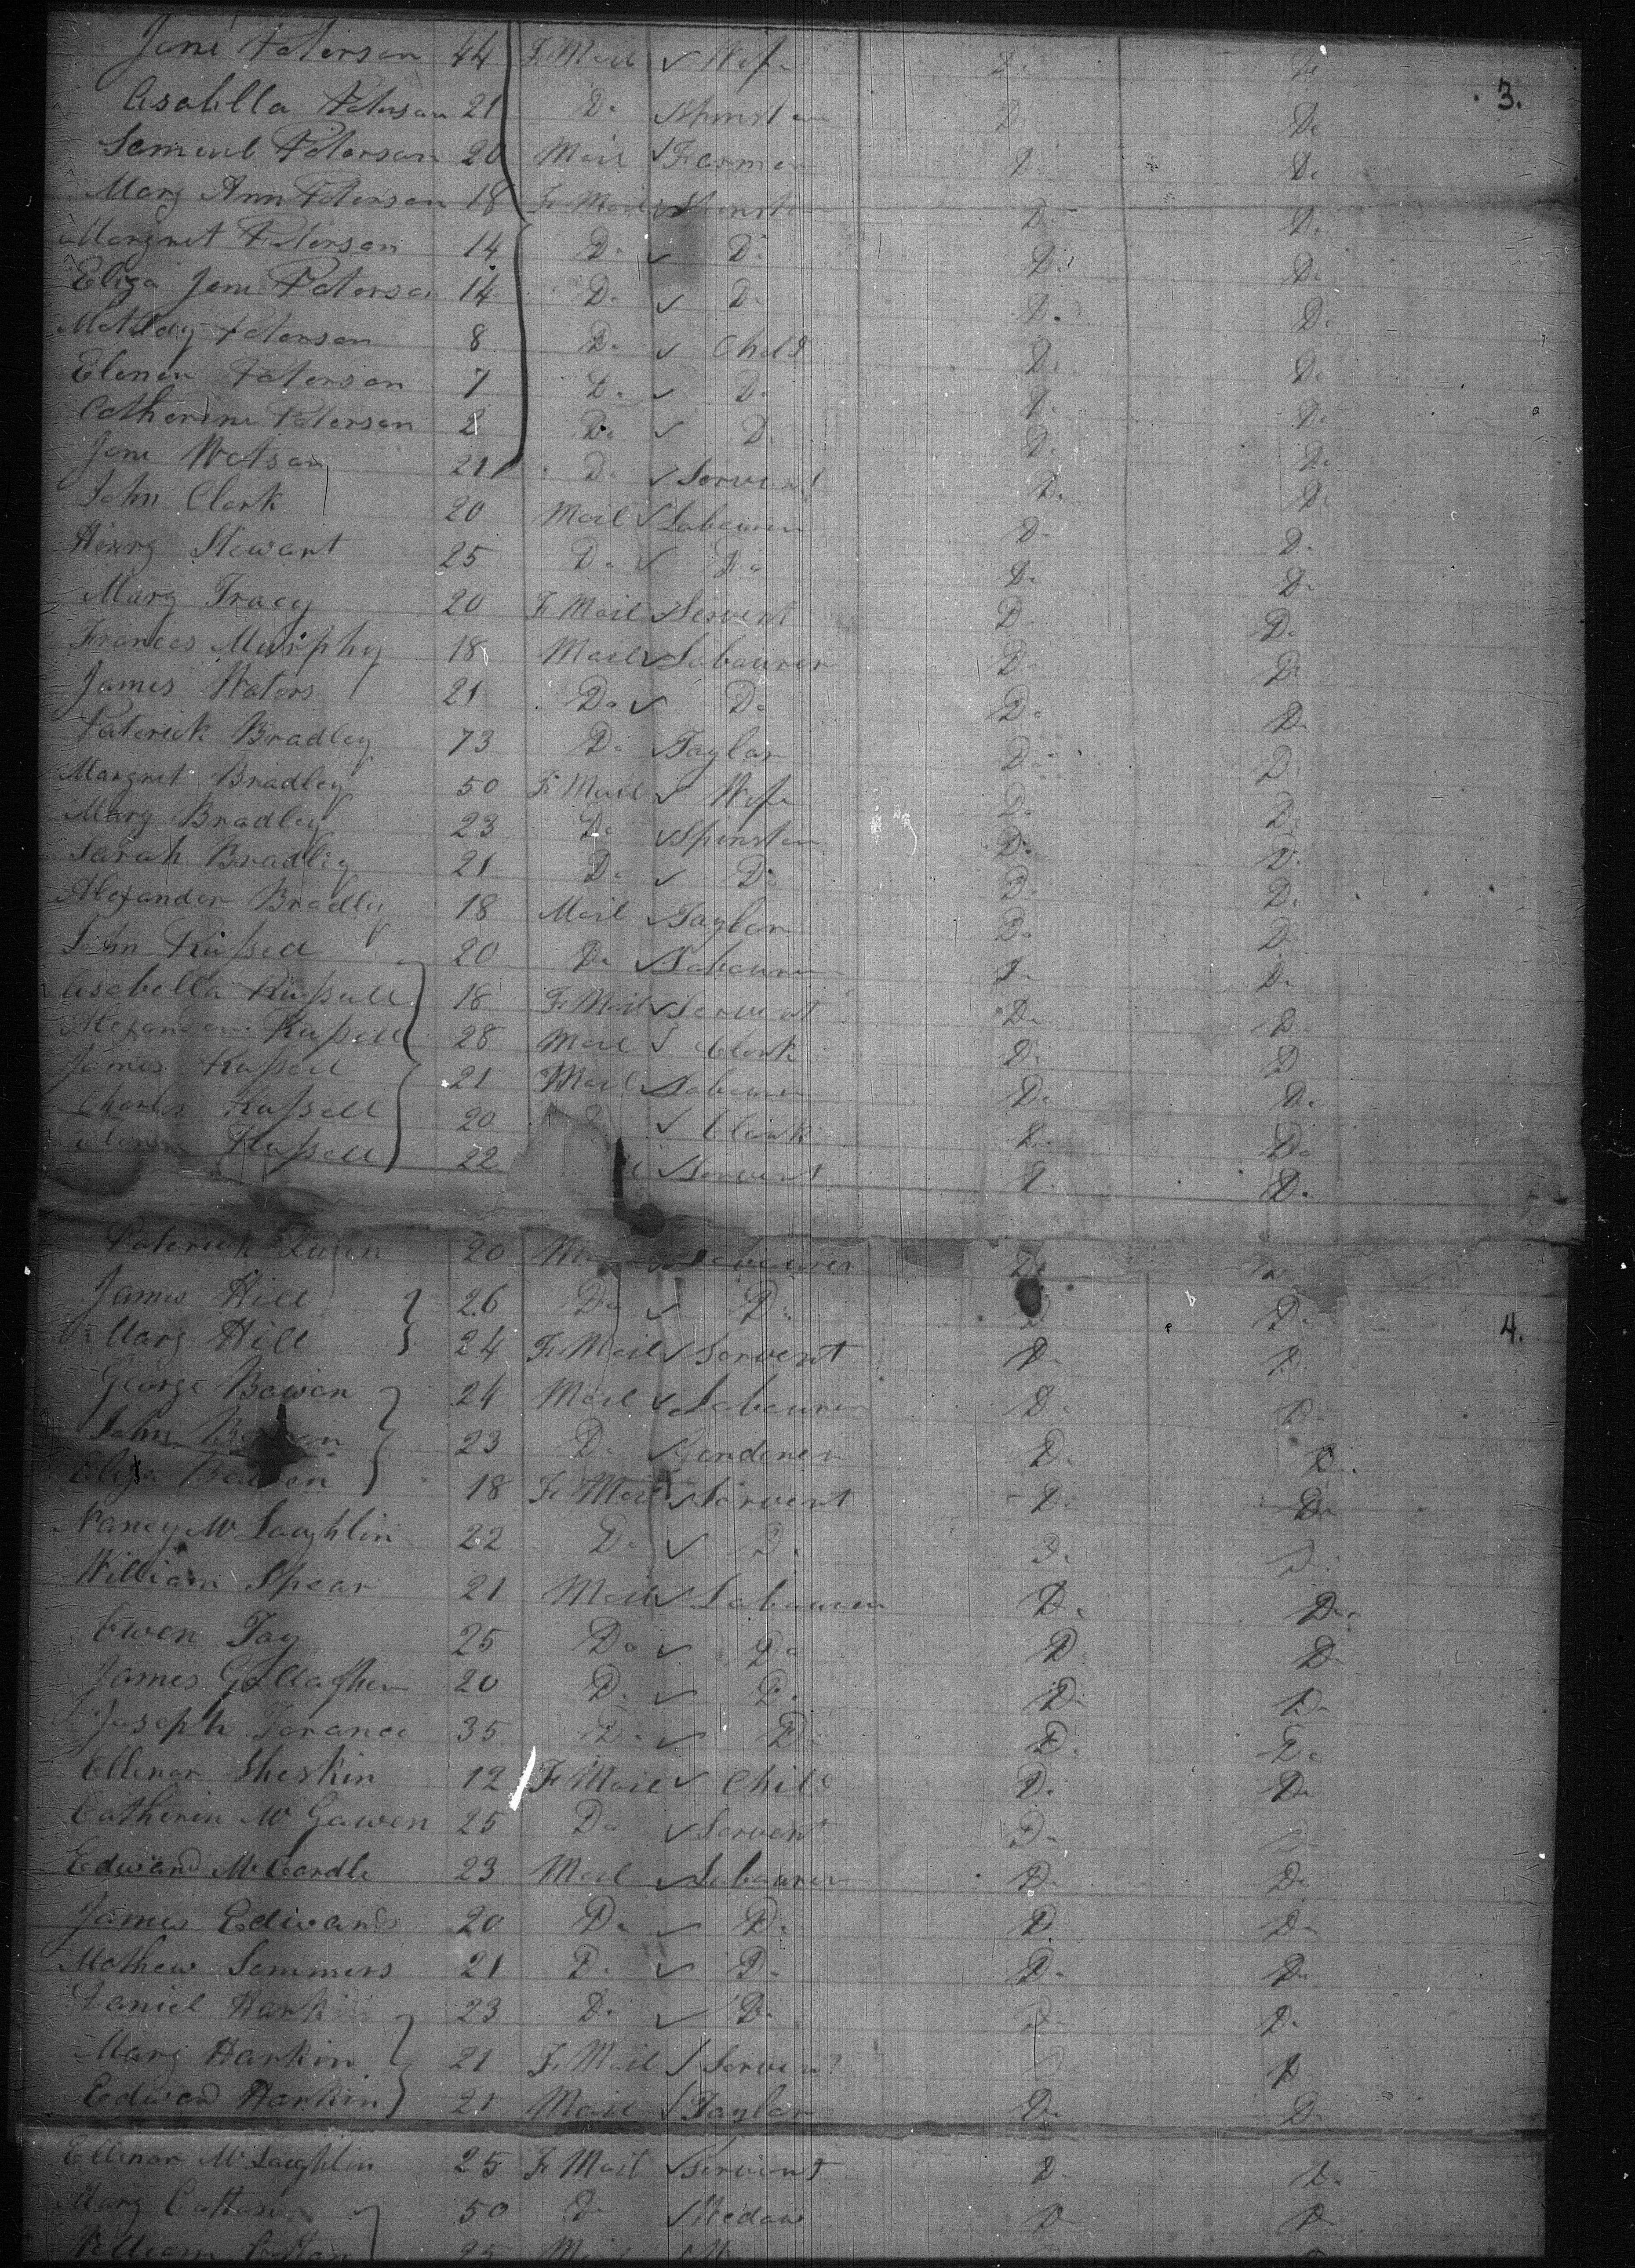 Jane Paterson 44 F Mail ✓ Wife Do Do
3.
Asabella Paterson 21 Do ✓ Spinster Do Do
Samuel Paterson 20 Mail ✓ Farmer Do Do
Mary Ann Paterson 18 F Mail ✓ Spinster Do Do
Margret Paterson 14 Do ✓ Do Do Do
Eliza Jane Paterson 14 Do ✓ Do Do Do
Paterson 8 Do ✓ Child Do Do
Elenor Paterson 7 Do ✓ Do Do Do
Catherine Paterson 2 Do ✓ Do Do Do
Jane Watson 21 Do ✓ Servent Do Do
John Clark 20 Mail ✓ Labourer Do Do
Henry Stewart 25 Do ✓ Do Do Do
Mary Tracy 20 F Mail ✓ Servent Do Do
Frances Murphy 18 Mail ✓ Labourer Do Do
James Waters 21 Do ✓ Do Do Do
Paterick Bradley 73 Do ✓ Taylor Do Do
Margret Bradley 50 F Mail ✓ Wife Do Do
Mary Bradley 23 Do ✓ Spinster Do Do
Sarah Bradley 21 Do ✓ Do Do Do
Alexander Bradley 18 Mail ✓ Taylor Do Do
John Russell 20 Do ✓ Labourer Do Do
Asabella Russell 18 F Mail ✓ Servent Do Do
Alexander Russell 28 Mail ✓ Clark Do Do
James Russell 21 Mail ✓ Labourer Do Do
Charles Russell 20 ✓ Clark Do Do
Russell 22 ✓ Servent Do Do
Paterick Quinn 20 ✓ Labourer Do Do
James Hill 26 Do ✓ Do Do Do
4.
Mary Hill 24 F Mail ✓ Servent Do Do
George Bowen 24 Mail ✓ Labourer Do Do
John Bowen 23 Do ✓ Gardener Do Do
Eliza Bowen 18 F Mail ✓ Servent Do Do
Nancy Mc Laughlin 22 Do ✓ Do Do Do
William Spear 21 Mail ✓ Labourer Do Do
Owen Foy 25 Do ✓ Do Do Do
James Gallagher 20 Do ✓ Do Do Do
Joseph Torance 35 Do ✓ Do Do Do
Ellenor Sheskin 12 F Mail ✓ Child Do Do
Catherin Mc Gawen 25 Do ✓ Servent Do Do
Edward Mc Cardle 23 Mail ✓ Labourer Do Do
James Edwards 20 Do ✓ Do Do Do
Mathew Sommers 21 Do ✓ Do Do Do
Daniel Harkin 23 Do ✓ Do Do Do
Mary Harkin 21 F Mail ✓ Servent Do Do
Edward Harkin 21 Mail ✓ Taylor Do Do
Ellenor Mc Laughlin 25 F Mail ✓ Servent Do Do
Mary Cattan 50 Do ✓ Wedow Do Do
William Cattan 25